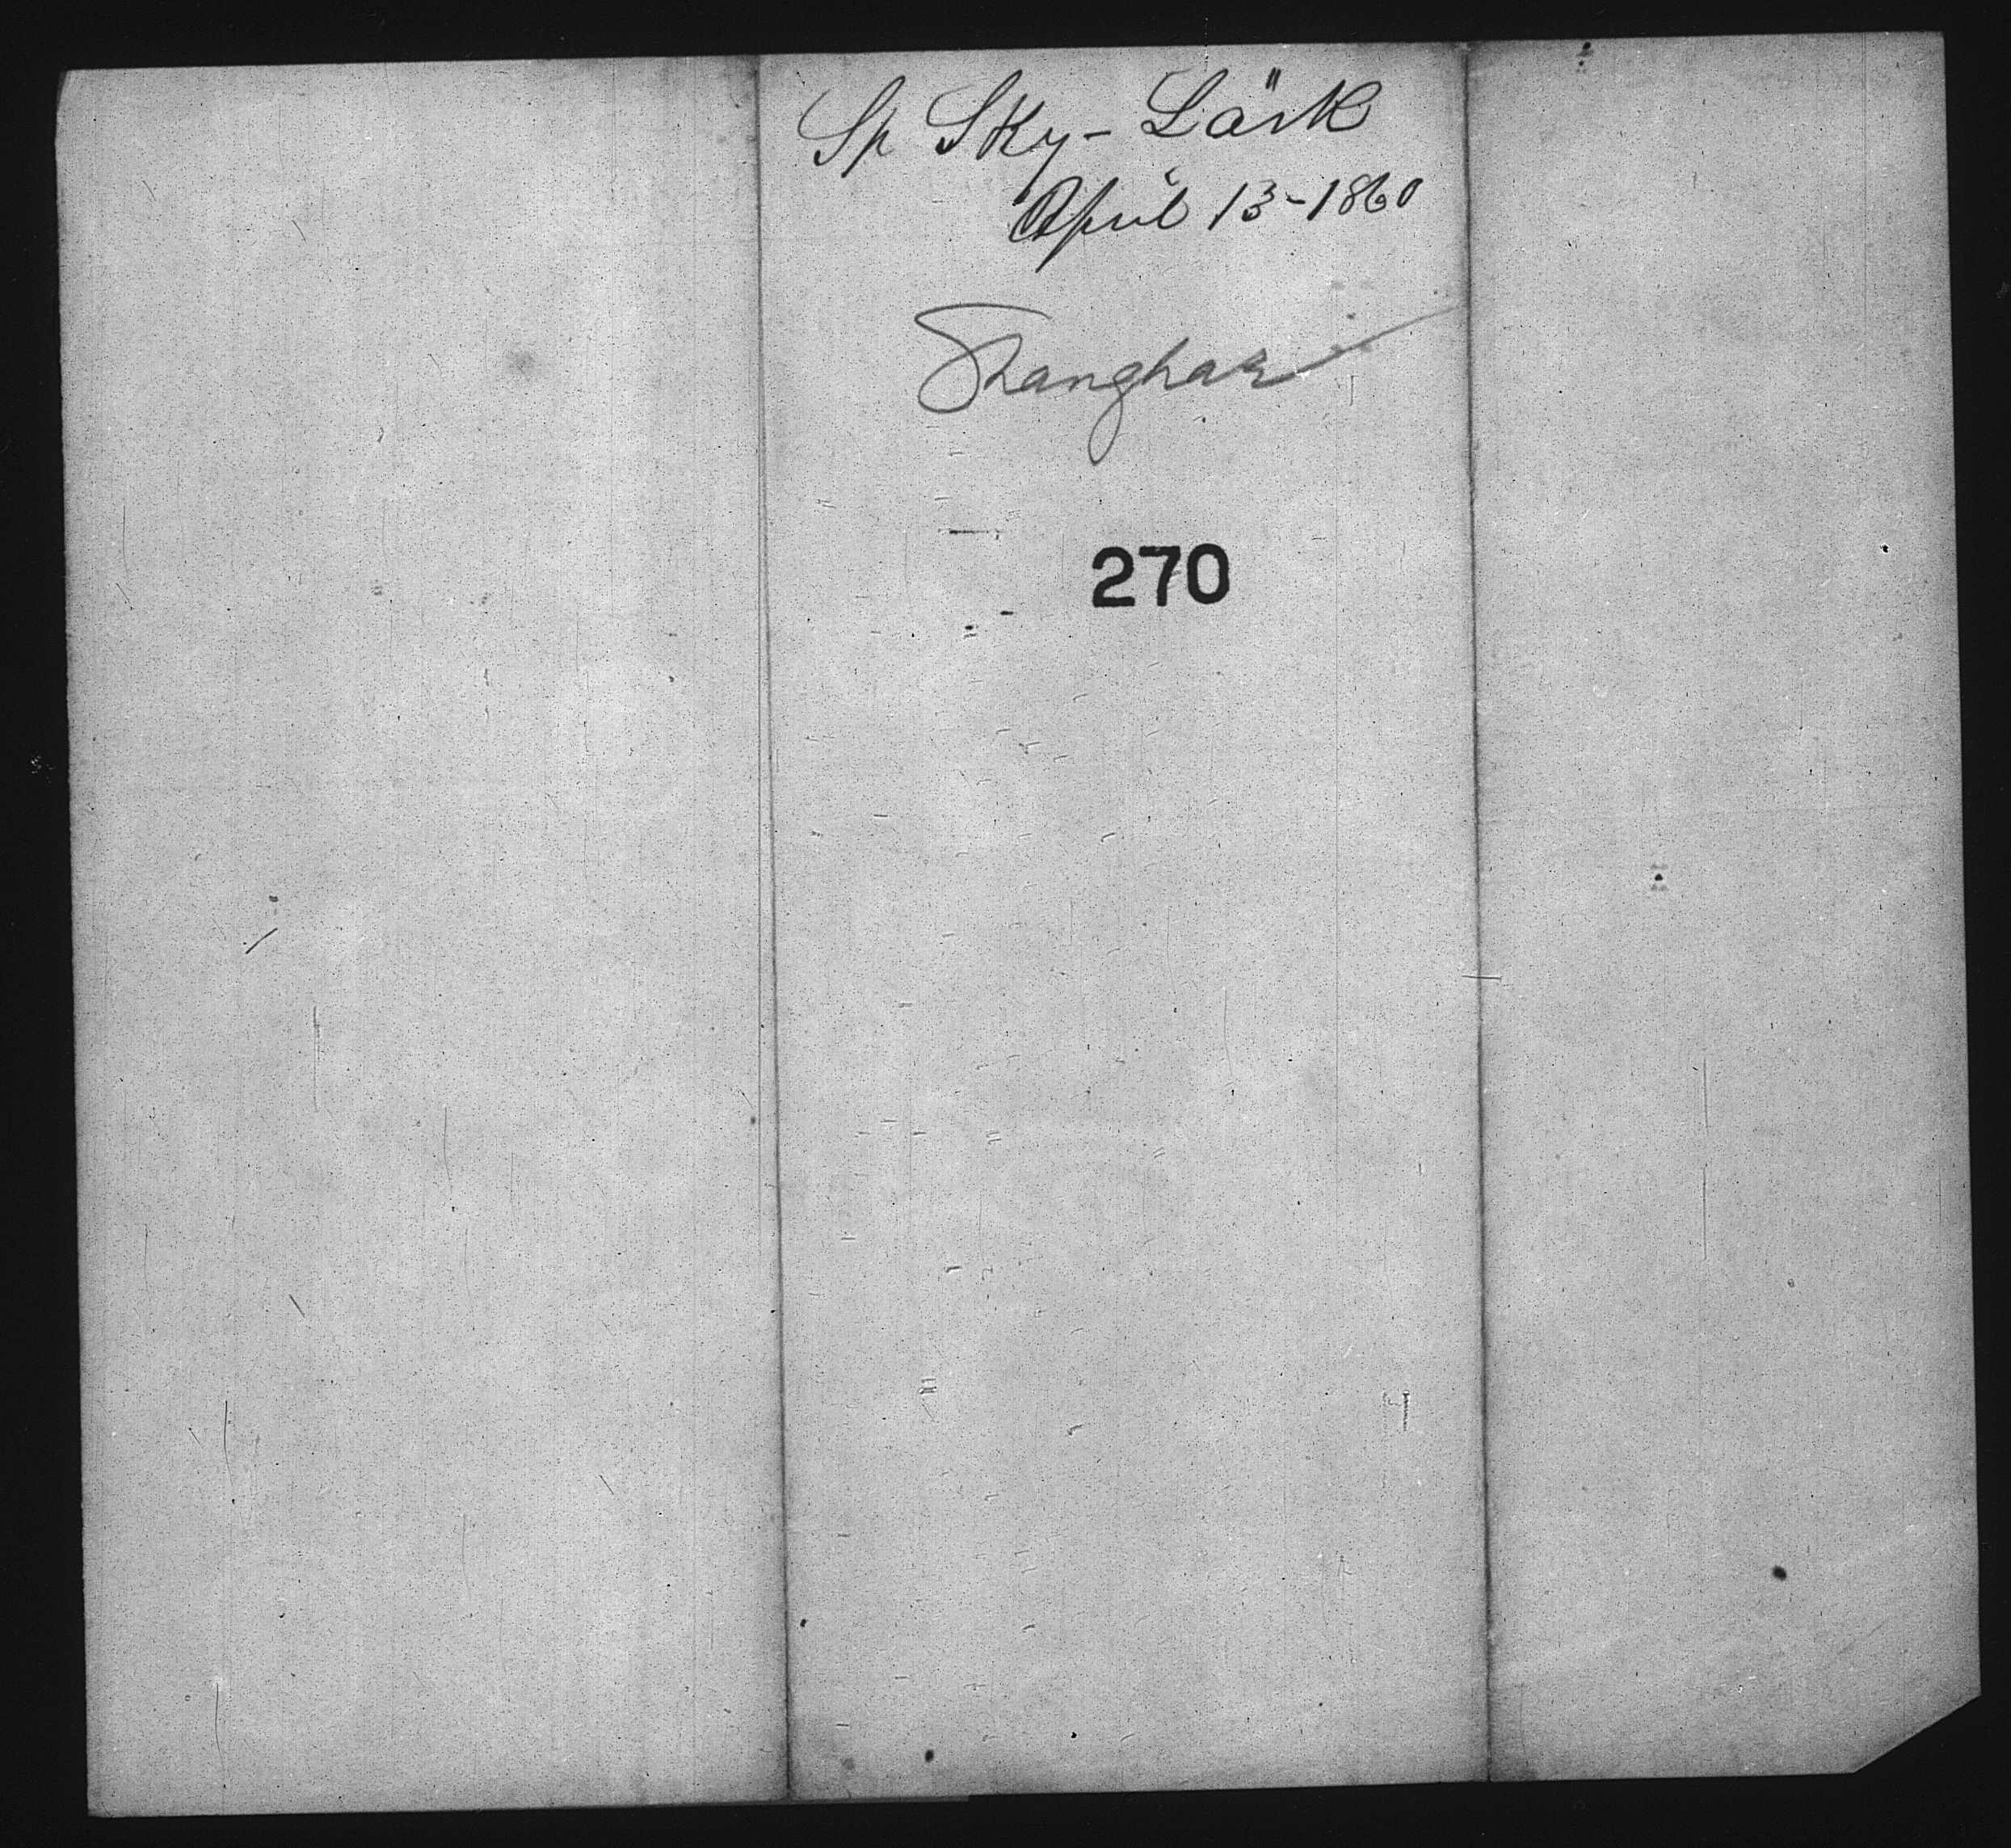 Sp Sky-Lark
April 13-1860
Shanghai
270